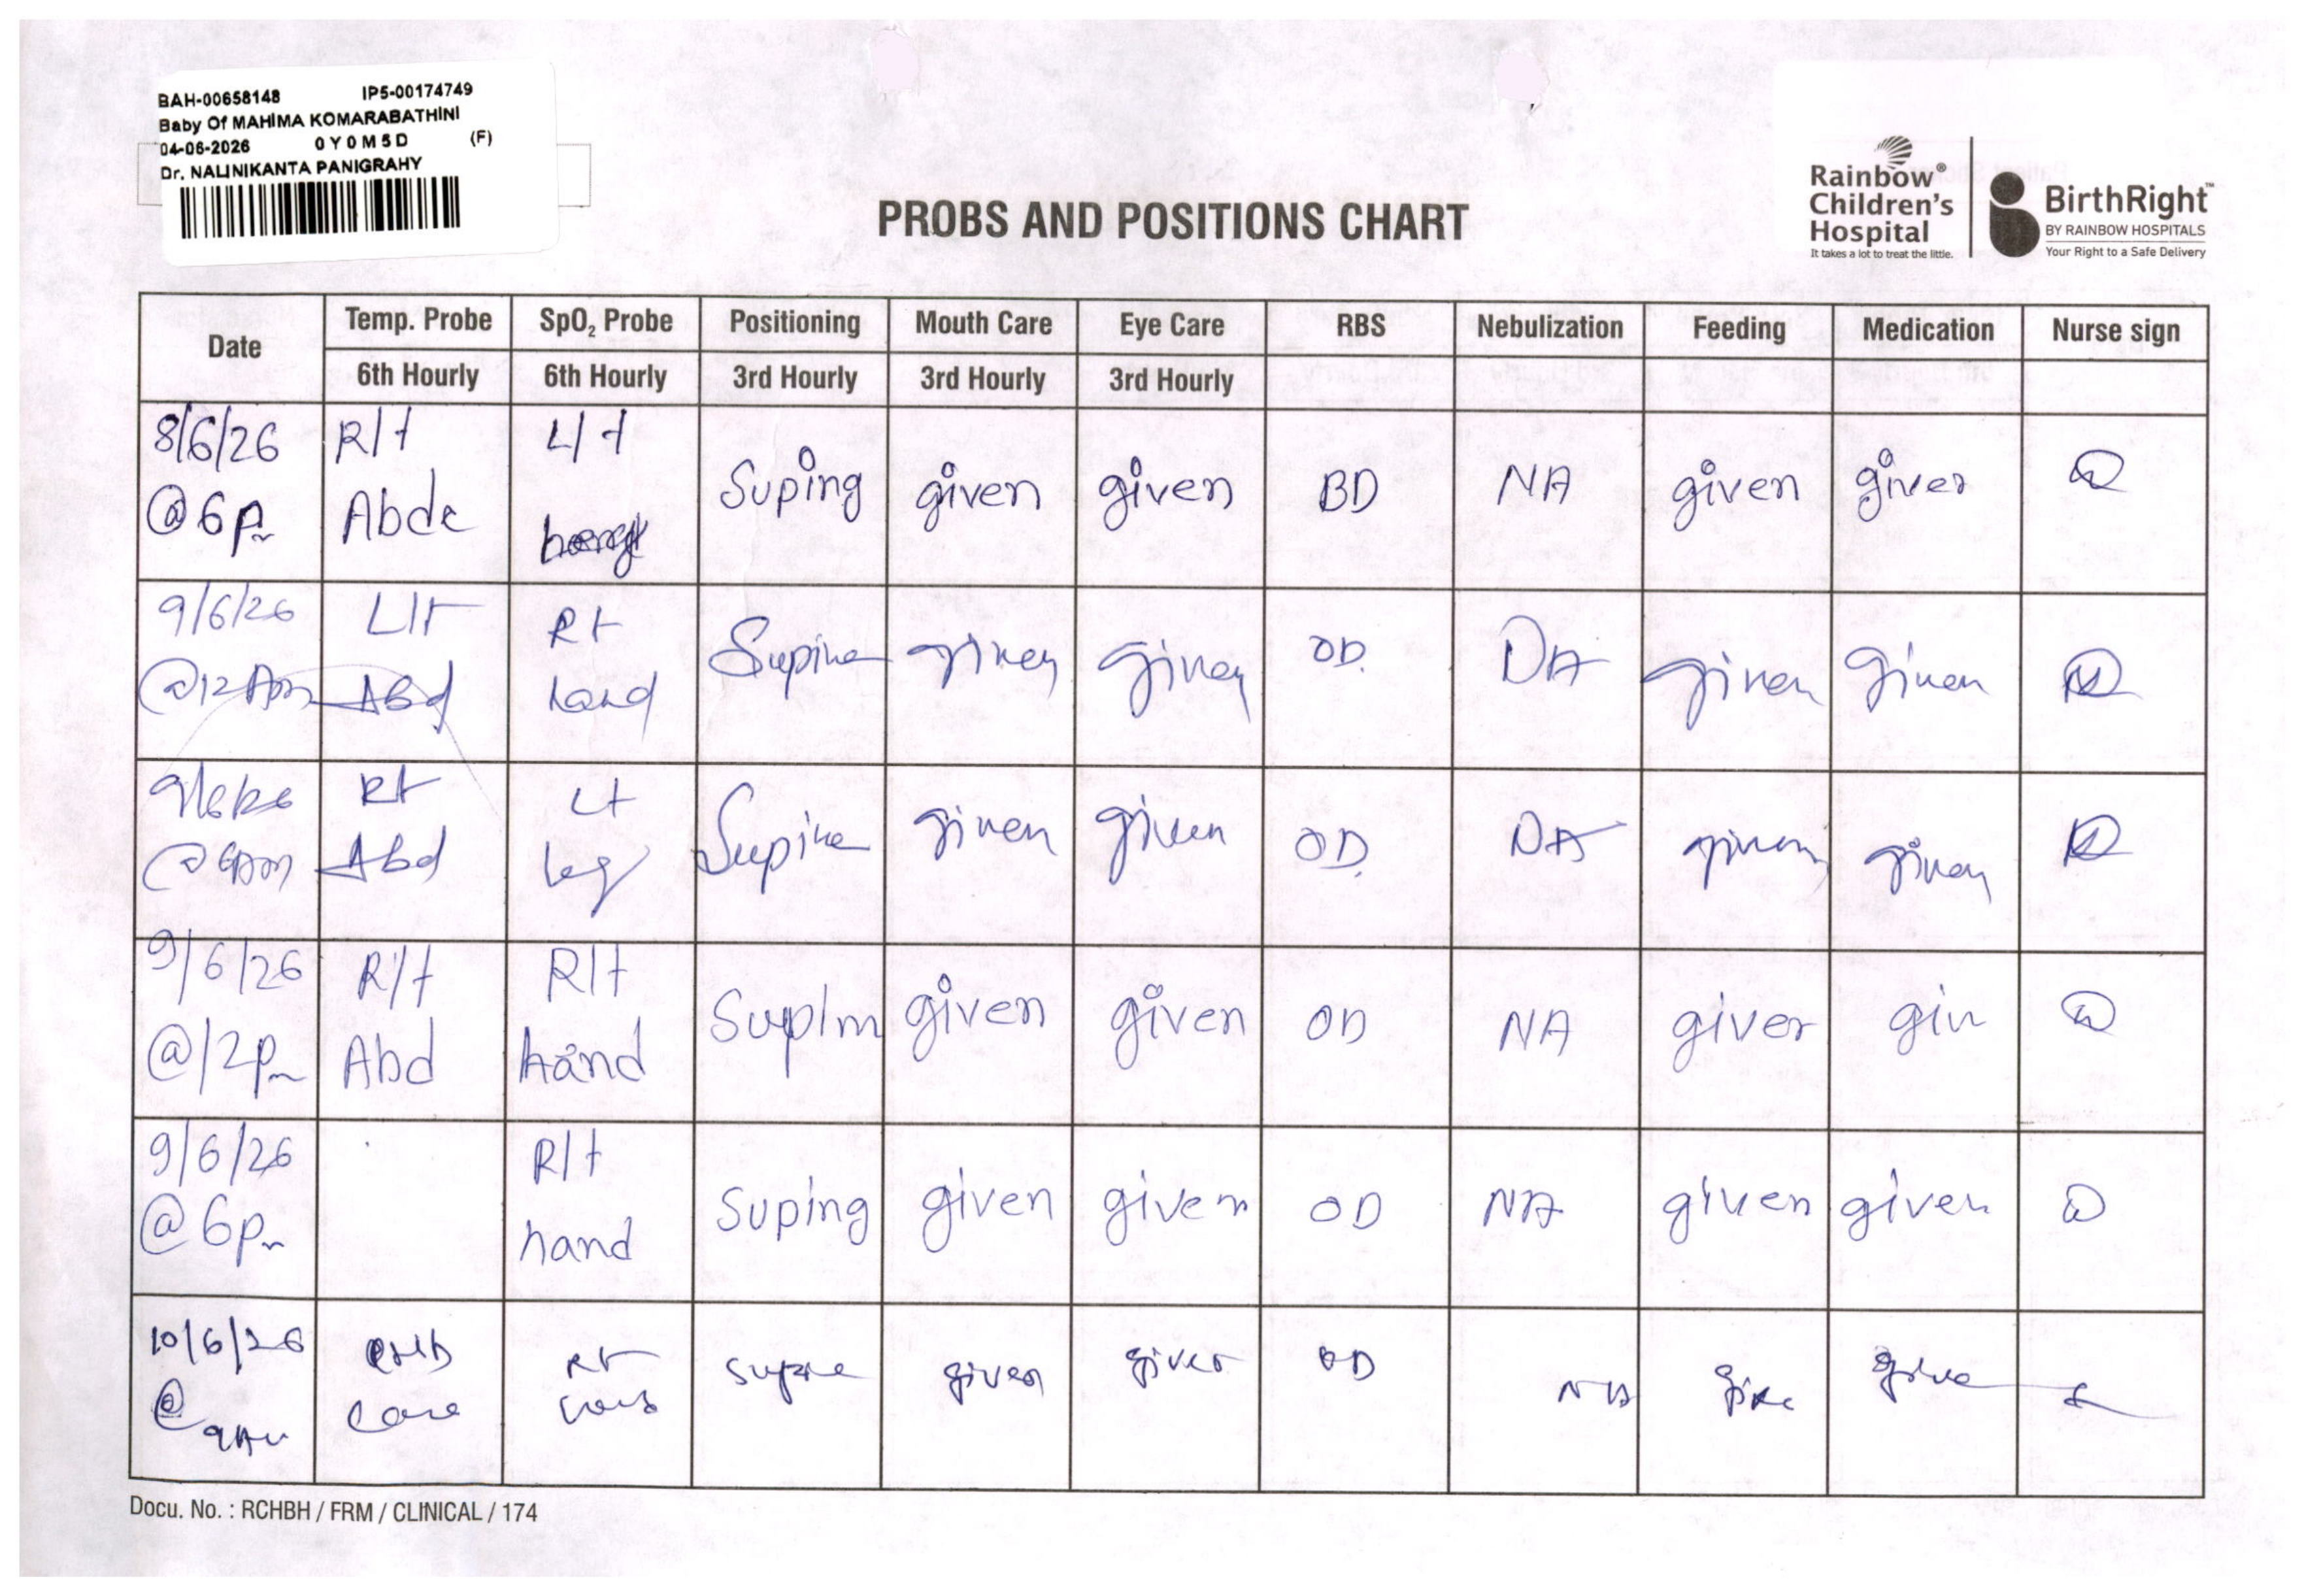 BAH-00658148 IP5-00174749
Baby Of MAHIMA KOMARABATHINI
04-06-2026 0Y0M5D (F)
Dr. NALINIKANTA PANIGRAHY
PROBS AND POSITIONS CHART
Rainbow®
Children's
Hospital
It takes a lot to treat the little.
BirthRight™
BY RAINBOW HOSPITALS
Your Right to a Safe Delivery
Date Temp. Probe SpO₂ Probe Positioning Mouth Care Eye Care RBS Nebulization Feeding Medication Nurse sign
6th Hourly 6th Hourly 3rd Hourly 3rd Hourly 3rd Hourly
8/6/26 R/t L/t
@6pm Abde Suping given given BD NA given given
9/6/26 L/t Rt
@12Am Abd hand Supine given given OD NA given given
9/6/26 Rt Lt
@6Am Abd leg Supine given given OD NA given given
9/6/26 R/t R/t
@12pm Abd hand given given OD NA given
9/6/26 R/t
@6pm hand Suping given given OD NA given given
10/6/26 Rt supine given given OD NA
@ care
Docu. No. : RCHBH / FRM / CLINICAL / 174